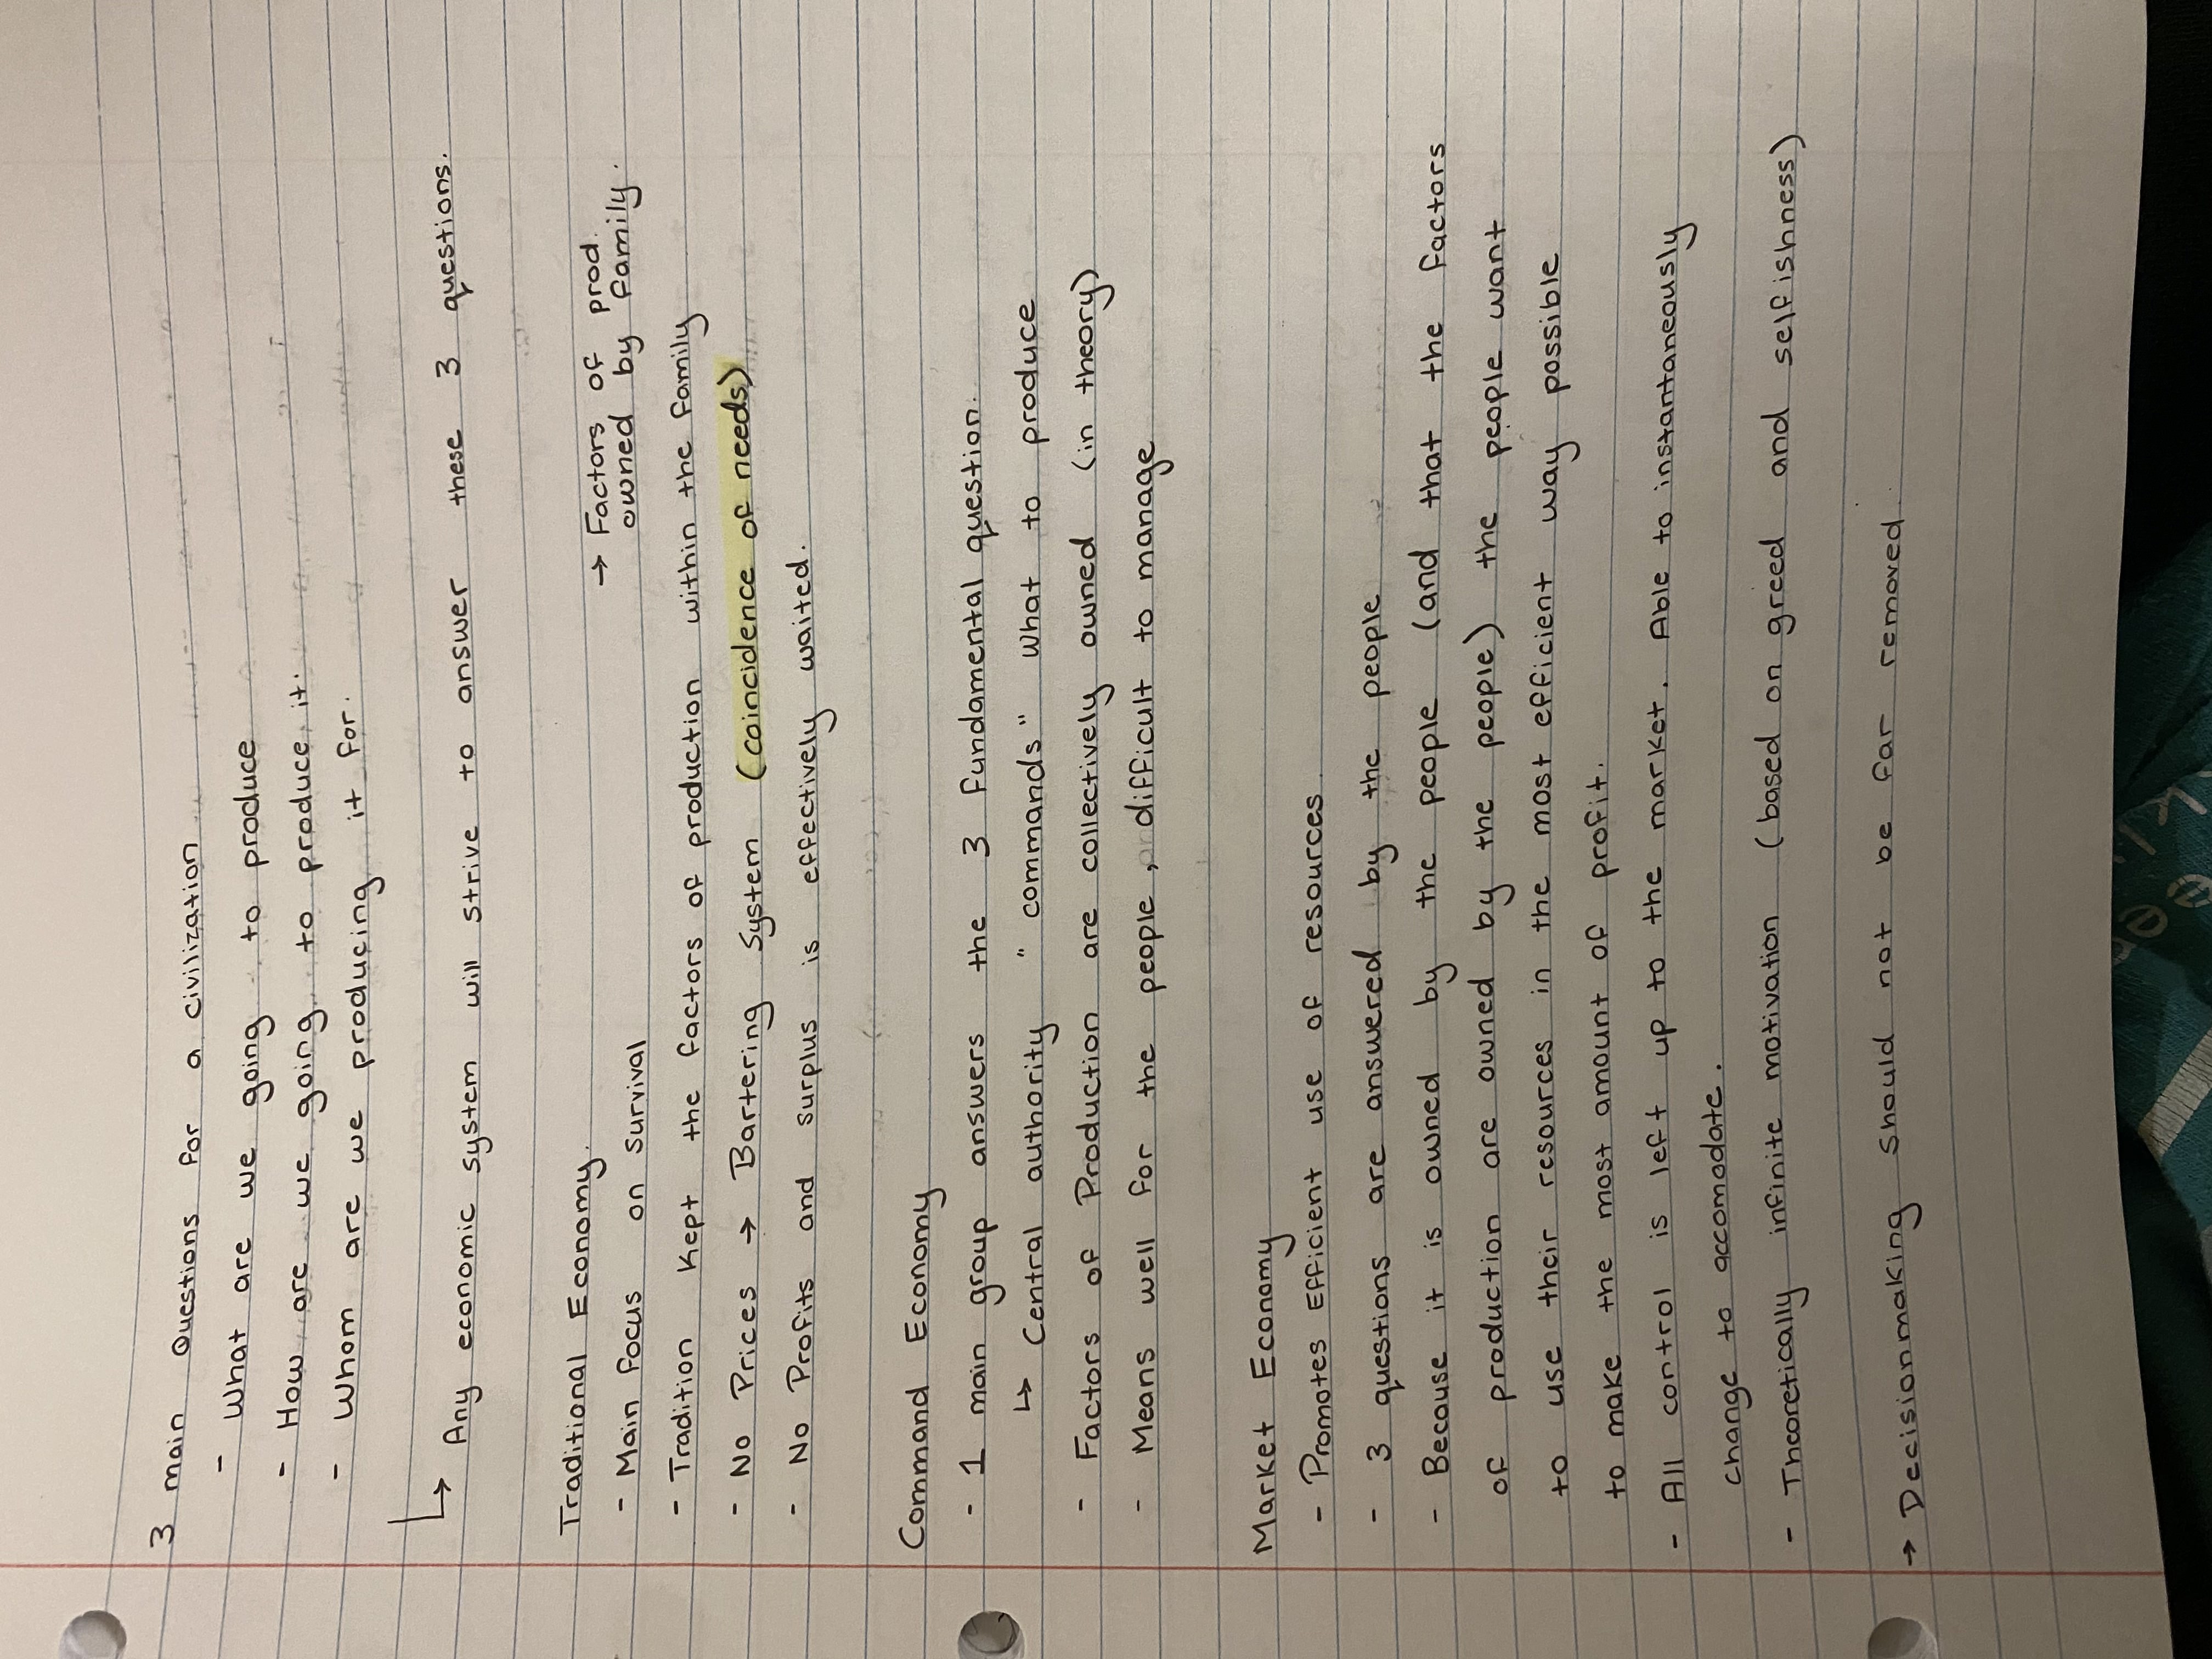 3 main Questions for a civilization
- What are we going to produce
- How are we going to produce it.
- Whom are we producing it for.
↳ Any economic system will strive to answer these 3 questions.
Traditional Economy.
→ Factors of prod.
owned by family.
- Main focus on survival
- Tradition kept the factors of production within the family
- No Prices → Bartering System (coincidence of needs)
- No Profits and surplus is effectively waited.
Command Economy
- 1 main group answers the 3 fundamental question.
↳ Central authority "commands" what to produce
- Factors of Production are collectively owned (in theory)
- Means well for the people, difficult to manage
Market Economy
- Promotes Efficient use of resources.
- 3 questions are answered by the people
- Because it is owned by the people (and that the factors
of production are owned by the people) the people want
to use their resources in the most efficient way possible
to make the most amount of profit.
- All control is left up to the market. Able to instantaneously
change to accomodate.
- Theoretically infinite motivation (based on greed and selfishness)
→ Decisionmaking should not be far removed